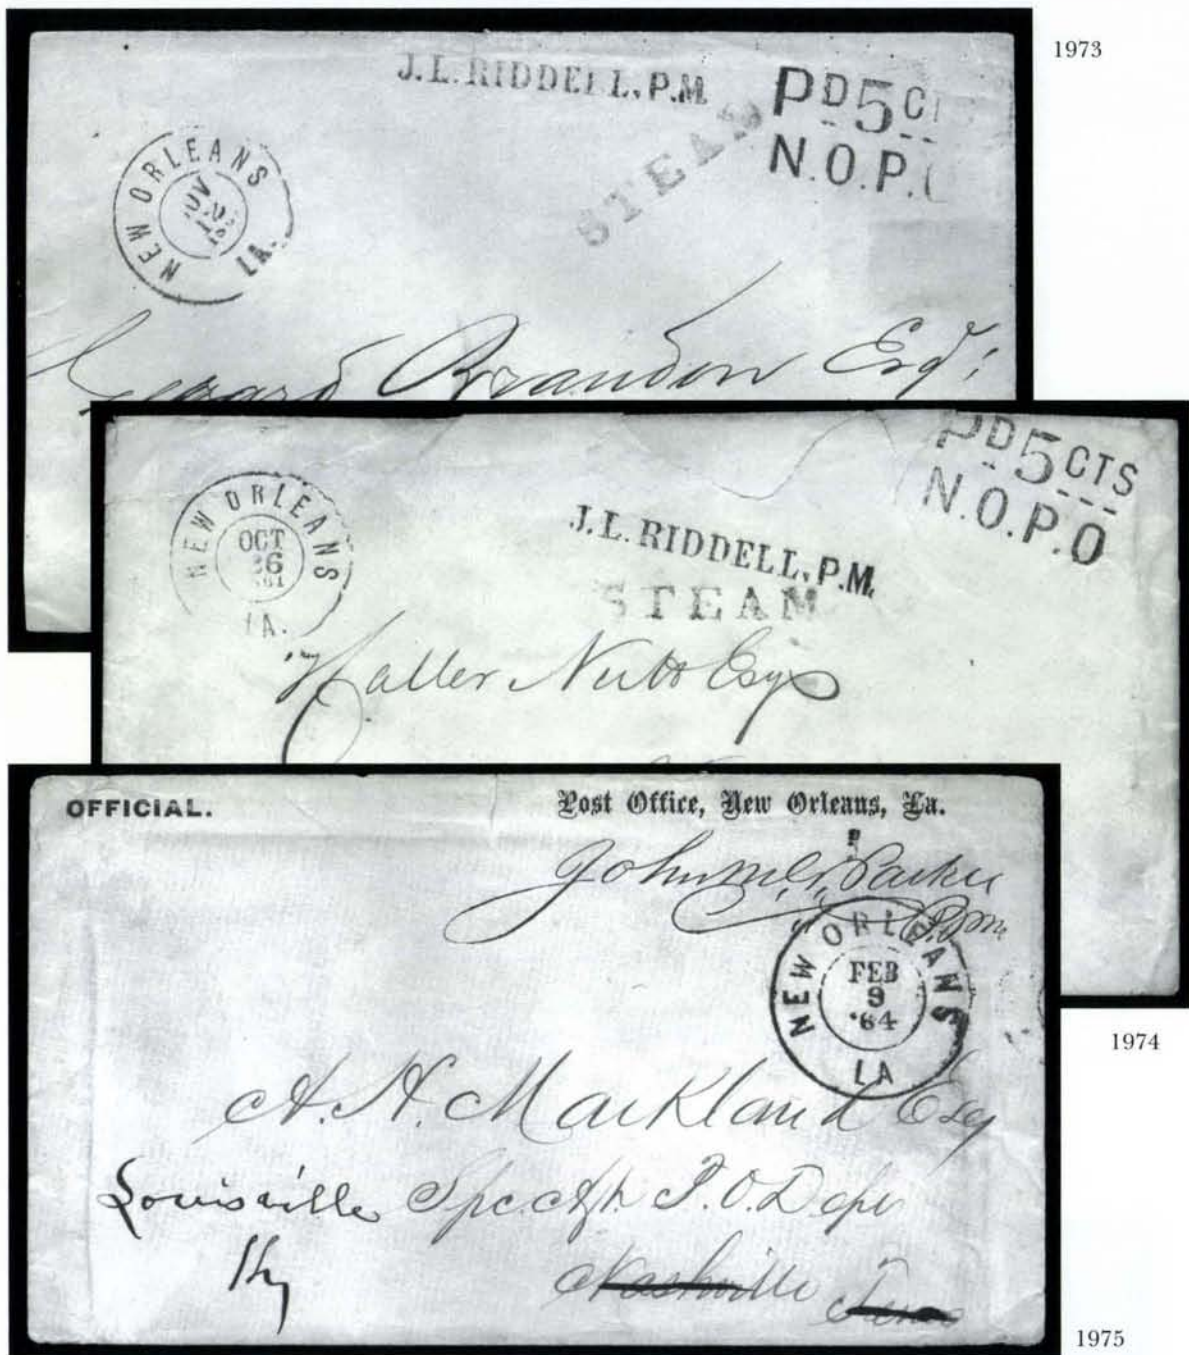 1973
J.L.RIDDELL, P.M.
PD 5 C
N.O.P.
STEAM
NEW ORLEANS
LA.
Gerard Brandon Esqr
PD 5 CTS
N.O.P.O
NEW ORLEANS
OCT
26
1861
LA.
J.L.RIDDELL, P.M.
STEAM
Haller Nutt Esq
OFFICIAL.
Post Office, New Orleans, La.
John M. G. Parker
P.M.
NEW ORLEANS
FEB
9
'64
LA
1974
A. H. Markland Esq
Louisville Spc. Agt. P.O. Dept
Ky
Nashville Tenn
1975